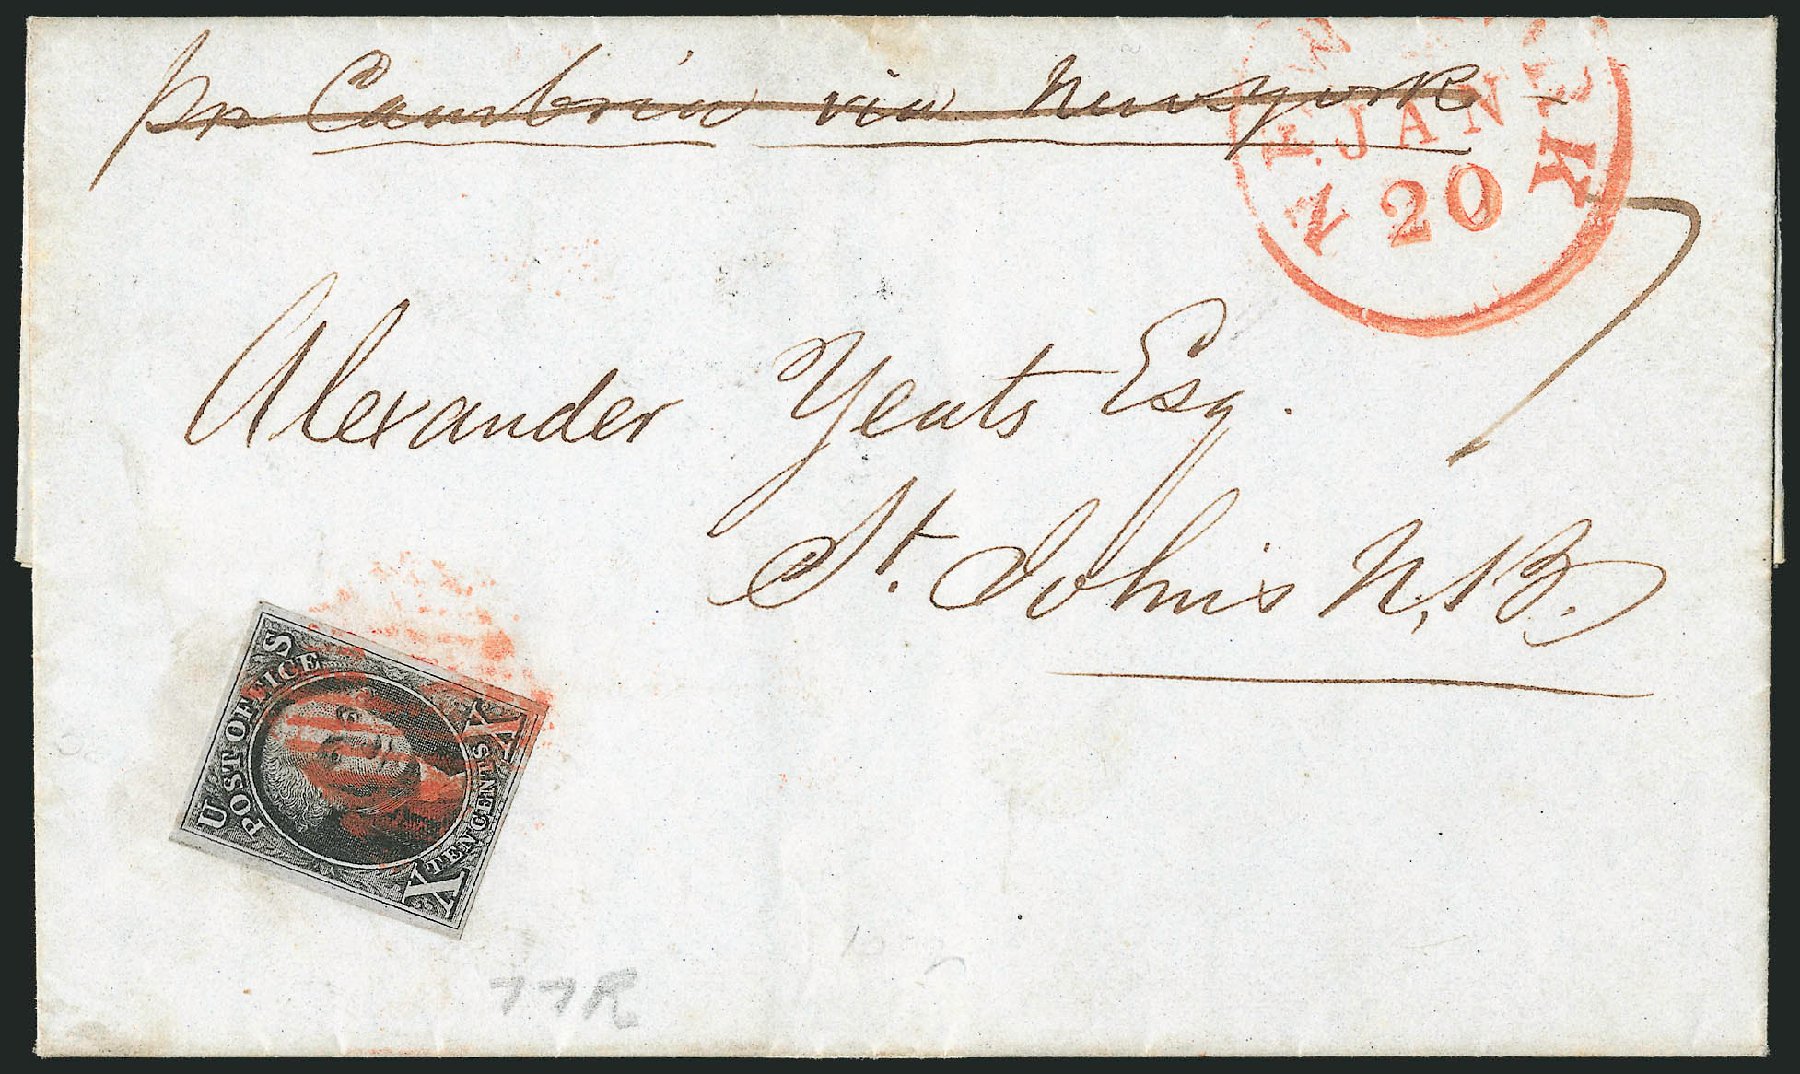 pr Cambria via Newyork
NEW YORK
JAN
20
7
Alexander Yeats Esq.
St. John's N.B.
U S
POST OFFICE
TEN CENTS
X X
77R